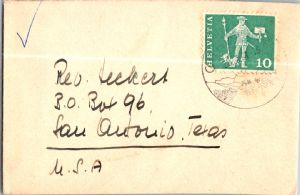 HELVETIA
10
Rev. Leckert
B.O. Box 96,
San Antonio, Texas
U.S.A